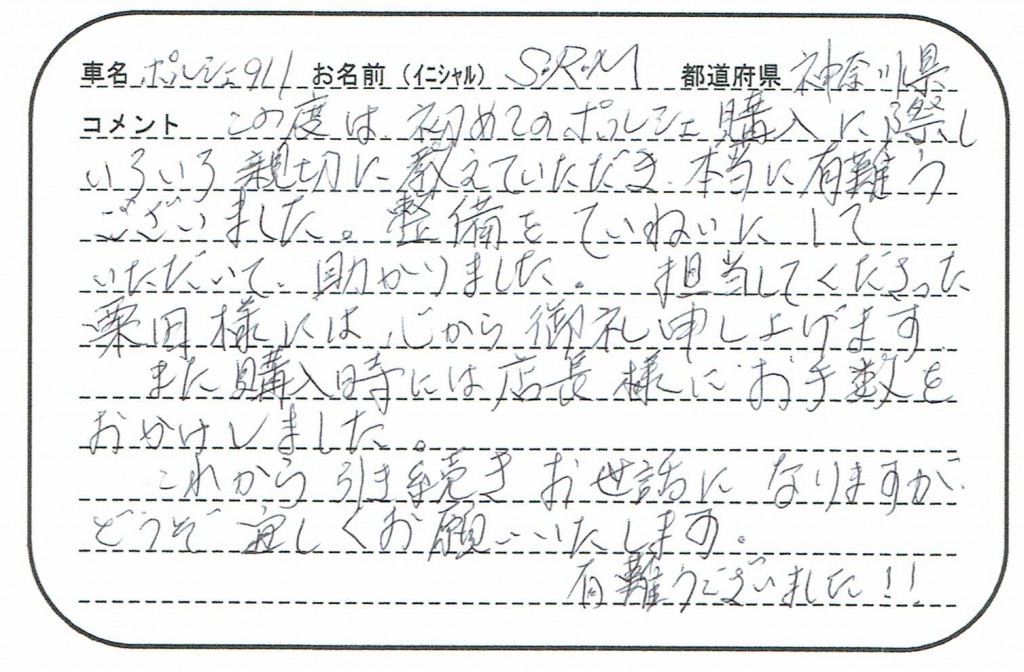 車名 ポルシェ911 お名前（イニシャル） S・R・M 都道府県 神奈川県
コメント この度は、初めてのポルシェ購入に際し
いろいろ親切に教えていただき、本当に有難う
ございました。整備をていねいにして
いただいて、助かりました。担当してくださった
栗田様には、心から御礼申し上げます
また購入時には店長様にお手数を
おかけしました。
これから引き続きお世話になりますが、
どうぞ宜しくお願いいたします。
有難うございました!!